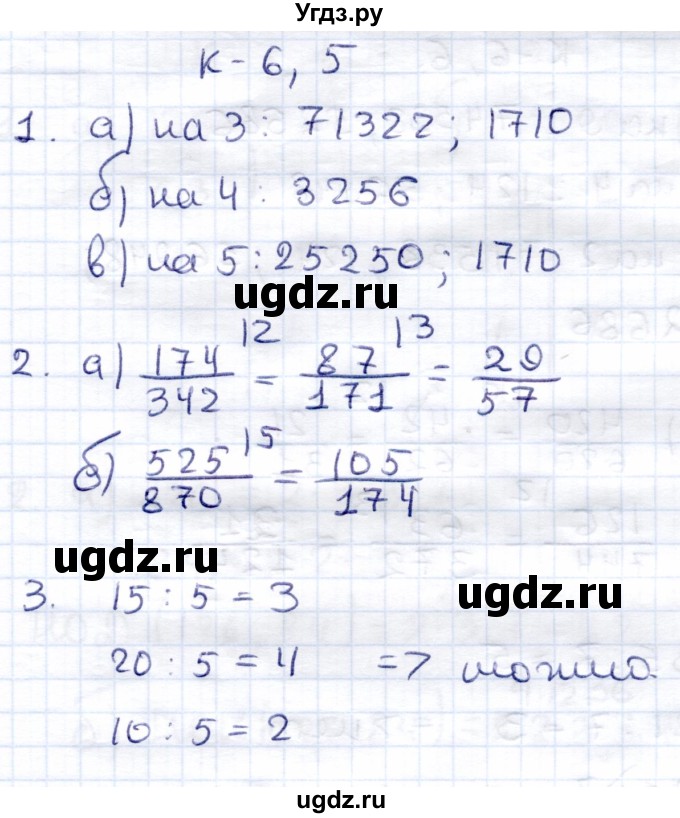 Угдз.ру
К-6, 5
1. а) на 3: 71322; 1710
б) на 4: 3256
в) на 5: 25250; 1710
ugdz.ru
2. а) 174/342 |2 = 87/171 |3 = 29/57
б) 525/870 |5 = 105/174
ugdz.ru
3. 15 : 5 = 3
ugdz.ru
20 : 5 = 4 => можно.
10 : 5 = 2
ugdz.ru